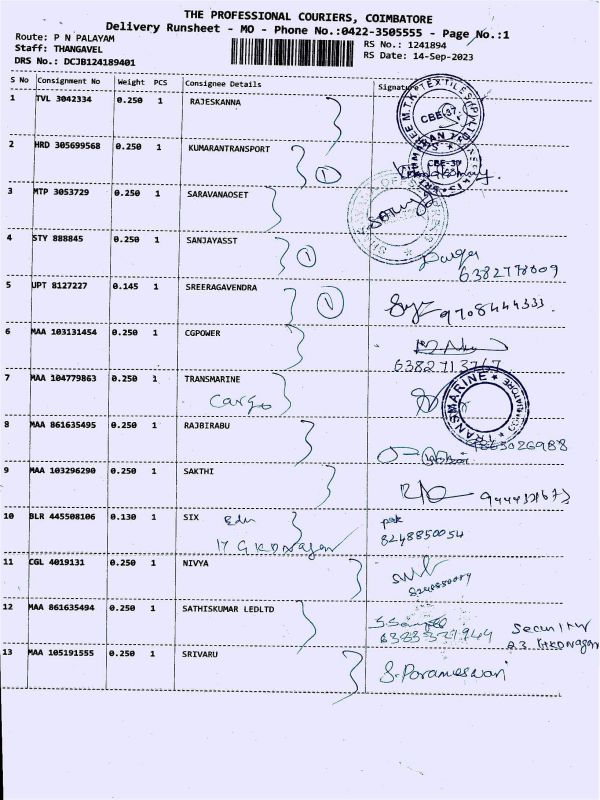 THE PROFESSIONAL COURIERS, COIMBATORE
Delivery Runsheet - MO - Phone No.:0422-3505555 - Page No.:1
Route: P N PALAYAM
Staff: THANGAVEL
DRS No.: DCJB124189401
RS No.: 1241894
RS Date: 14-Sep-2023
S No Consignment No Weight PCS Consignee Details Signature
1 TVL 3042334 0.250 1 RAJESKANNA
CBE-37
2 HRD 305699568 0.250 1 KUMARANTRANSPORT
1
CBE-37
3 MTP 3053729 0.250 1 SARAVANAOSET
4 STY 888845 0.250 1 SANJAYASST
1
6382778009
5 UPT 8127227 0.145 1 SREERAGAVENDRA
1
9708444333.
6 MAA 103131454 0.250 1 CGPOWER
7 MAA 104779863 0.250 1 TRANSMARINE
Cargo
TRANSMARINE COIMBATORE
8 MAA 861635495 0.250 1 RAJBIRABU
9 MAA 103296290 0.250 1 SAKTHI
10 BLR 445508106 0.130 1 SIX Edu
17 GKD Nagar
8248850054
11 CGL 4019131 0.250 1 NIVYA
12 MAA 861635494 0.250 1 SATHISKUMAR LEDLTD
Security
13 MAA 105191555 0.250 1 SRIVARU
S. Parameswari